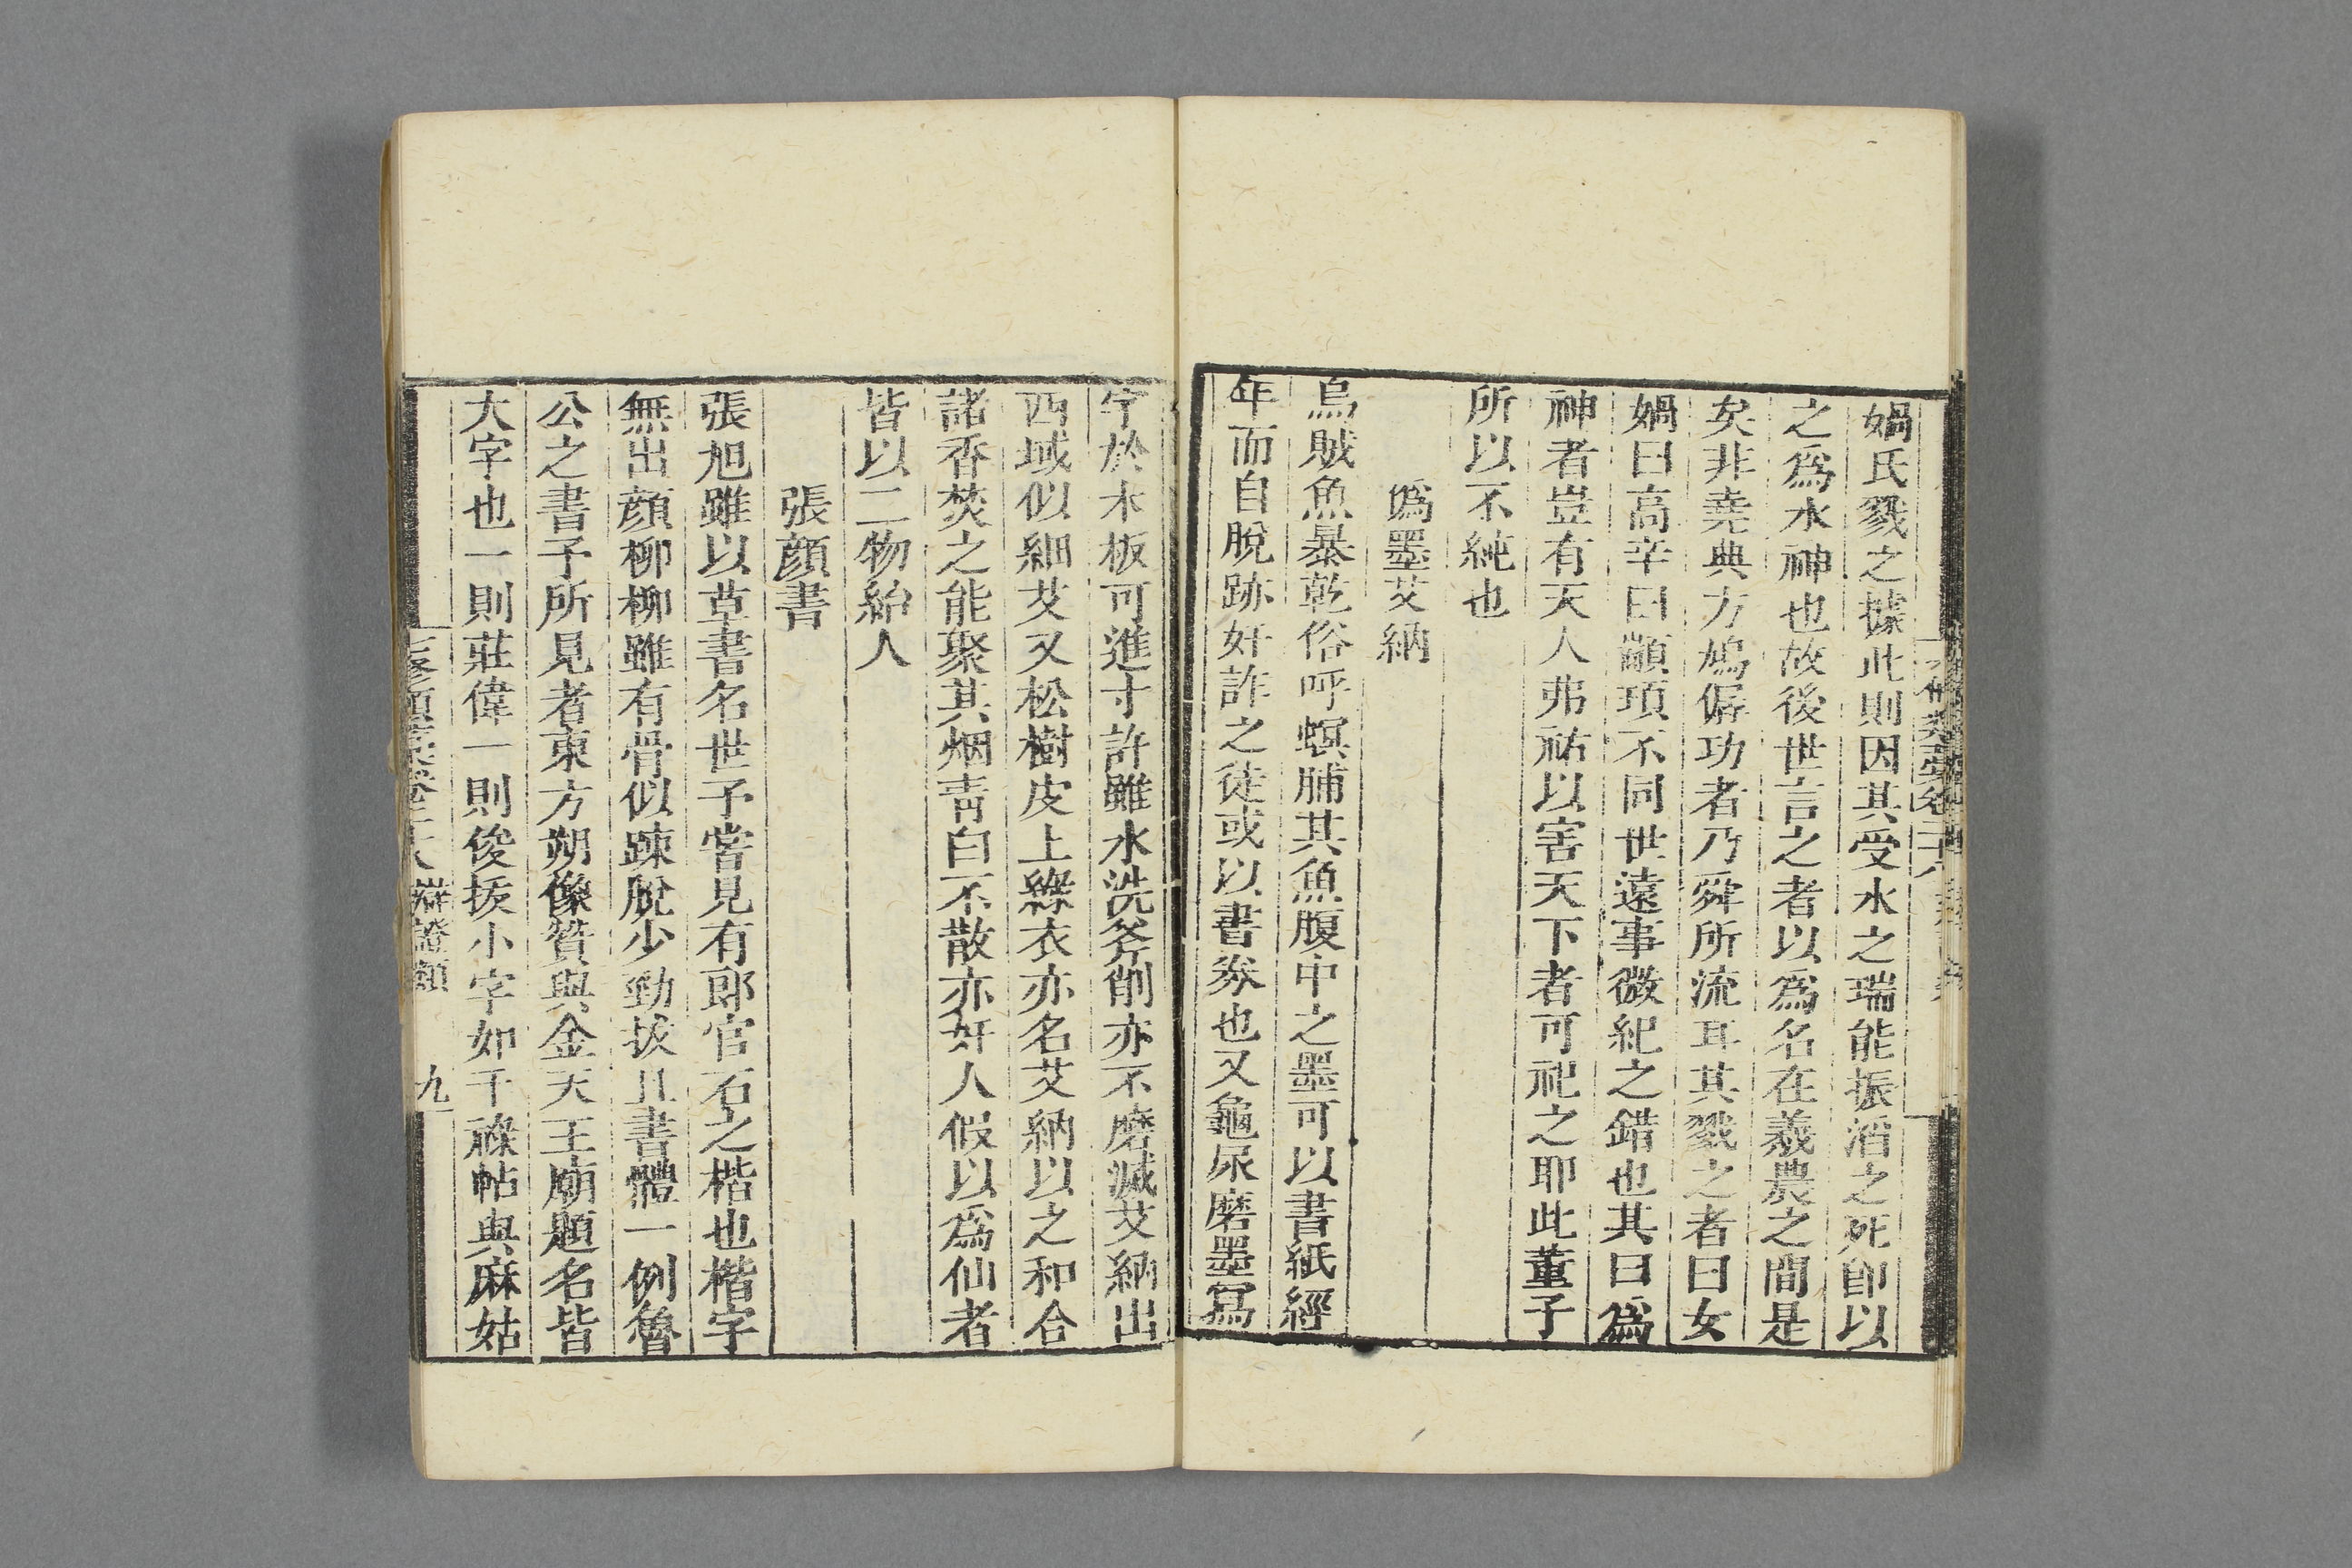 媧氏戮之據此則因其受水之瑞能振滔之死卽以
之爲水神也故後世言之者以爲名在羲農之間是
矣非堯典方鳩僝功者乃舜所流耳其戮之者曰女
媧曰高辛曰顓頊不同世遠事微紀之錯也其曰爲
神者豈有天人弗祐以害天下者可祀之耶此董子
所以不純也
僞墨艾納
烏賊魚暴乾俗呼螟脯其魚腹中之墨可以書紙經
年而自脫跡奸詐之徒或以書券也又龜尿磨墨寫
字於木板可進寸許雖水洗斧削亦不磨滅艾納出
西域似細艾又松樹皮上綠衣亦名艾納以之和合
諸香焚之能聚其烟靑白不散亦奸人假以爲仙者
皆以二物紿人
張顔書
張旭雖以草書名世予嘗見有郎官石之楷也楷字
無出顔柳柳雖有骨似踈脫少勁拔且書體一例魯
公之書予所見者東方朔像贊與金天王廟題名皆
大字也一則莊偉一則俊拔小字如干祿帖與麻姑
七修類藁卷二十八 辯證類 九